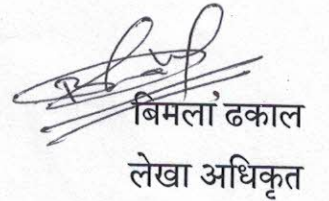 बिमला ढकाल
लेखा अधिकृत